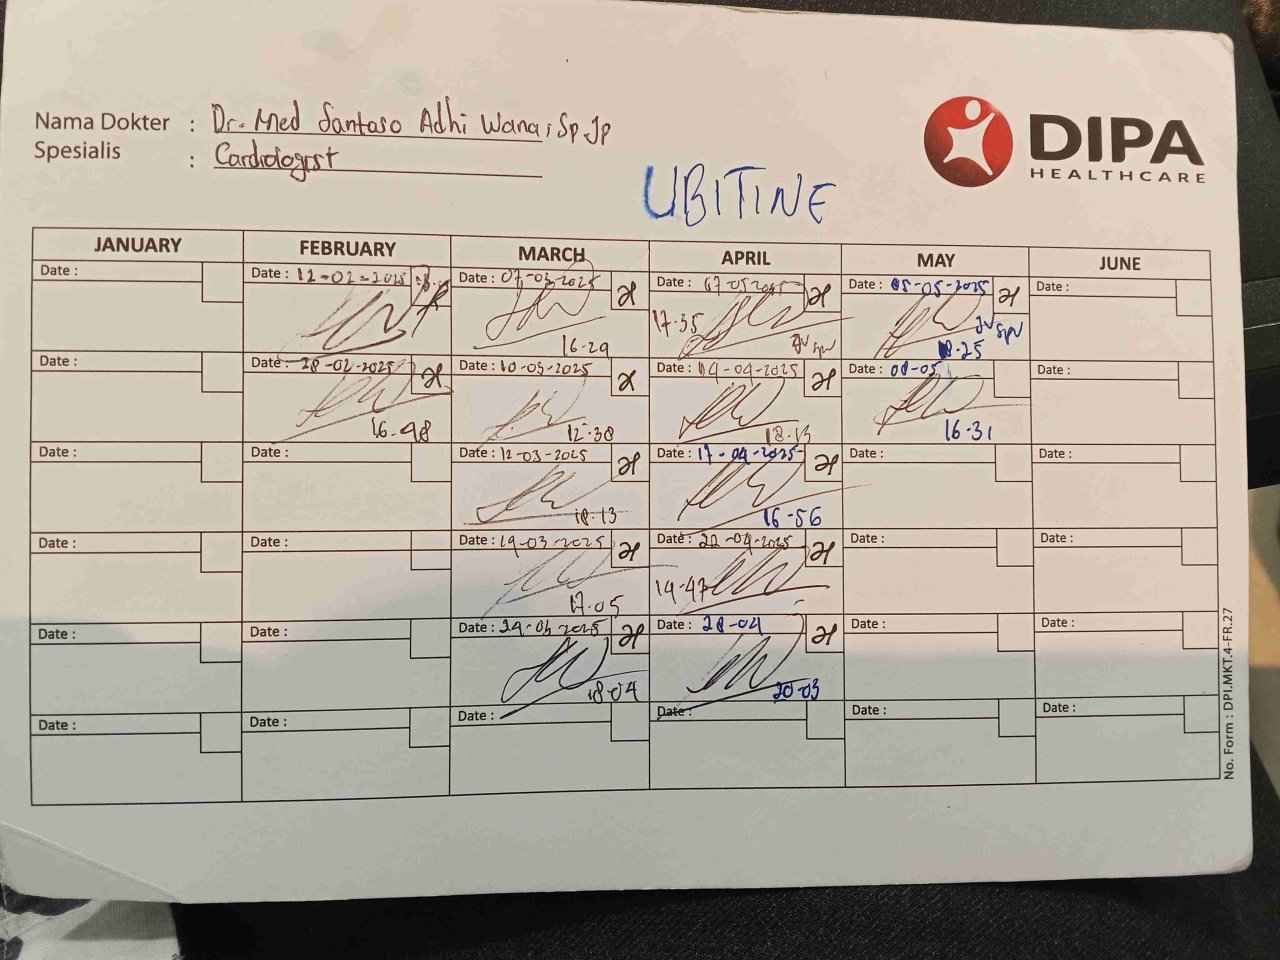 Nama Dokter : Dr. Med Santoso Adhi Wana, Sp.Jp
Spesialis : Cardiologist
DIPA
HEALTHCARE
UBITINE
JANUARY FEBRUARY MARCH APRIL MAY JUNE
Date : Date : 12-02-2025 Date : 07-03-2025 Date : Date : 05-05-2025 Date :
17-35
16-29 JV SPV JV SPV
18-25
Date : Date : 28-02-2025 Date : 10-03-2025 Date : 14-04-2025 Date : 08-05 Date :
16-48 12-38 18-13 16-31
Date : Date : Date : 12-03-2025 Date : 17-04-2025 Date : Date :
18-13 16-56
Date : Date : Date : 19-03-2025 Date : 22-04-2025 Date : Date :
17-05 14-47
Date : Date : Date : 24-03-2025 Date : 28-04 Date : Date :
18-04 20-03
Date : Date : Date : Date : Date : Date :
No. Form : DPI.MKT.4-FR.27